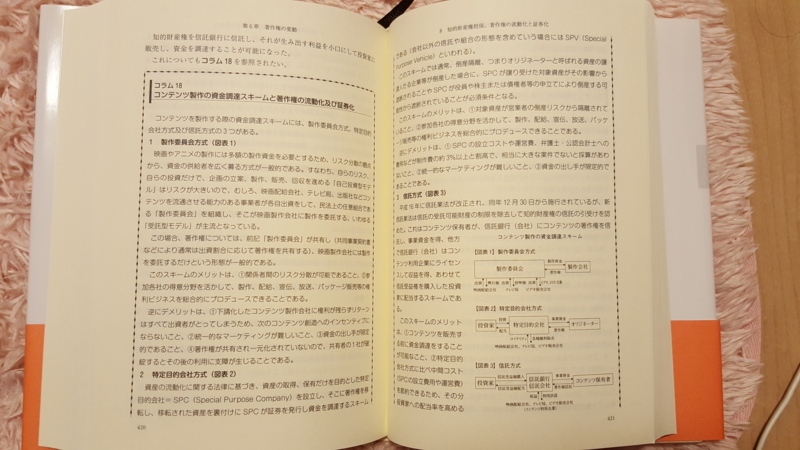 第6章 著作権の変動
知的財産権を信託銀行に信託し、それが生み出す利益を小口にして投資家に
販売し、資金を調達することが可能になった。
これについてもコラム18を参照されたい。
コラム18
コンテンツ製作の資金調達スキームと著作権の流動化及び証券化
コンテンツを製作する際の資金調達スキームには、製作委員会方式、特定目的
会社方式及び信託方式の3つがある。
1 製作委員会方式(図表1)
映画やアニメの製作には多額の製作資金を必要とするため、リスク分散の観点
から、資金の供給者を広く募る方式が一般的である。すなわち、自らのリスク、
自らの投資だけで、企画の立案、製作、販売、回収を進める「自己投資型モデ
ル」はリスクが大きいので、むしろ、映画配給会社、テレビ局、出版社などコン
テンツを流通させる能力のある事業者が各自出資をして、民法上の任意組合であ
る「製作委員会」を組織し、そこが映画製作会社に製作を委託する、いわゆる
「受託型モデル」が主流となっている。
この場合、著作権については、前記「製作委員会」が共有し(共同事業契約書
などにより通常は出資割合に応じて著作権を共有する)、映画製作会社には製作
を委託するだけという形態が一般的である。
このスキームのメリットは、①関係者間のリスク分散が可能であること、②参
加各社の得意分野を活かして、製作、配給、宣伝、放送、パッケージ販売等の権
利ビジネスを総合的にプロデュースできることである。
逆にデメリットは、①下請化したコンテンツ製作会社に権利が残らずリターン
はすべて出資者がとってしまうため、次のコンテンツ創造へのインセンティブに
ならないこと、②統一的なマーケティングが難しいこと、③資金の出し手が限定
的であること、④著作権が共有され一元化されていないので、共有者の1社が破
綻するとその後の利用に支障が生じることである。
2 特定目的会社方式(図表2)
資産の流動化に関する法律に基づき、資産の取得、保有だけを目的とした特定
目的会社=SPC(Special Purpose Company)を設立し、そこに著作権を移
転し、移転された資産を裏付けにSPCが証券を発行し資金を調達するスキーム
420
9 知的財産権担保、著作権の流動化と証券化
である(会社以外の信託や組合の形態を含めていう場合にはSPV(Special
Purpose Vehicle)といわれる)。
このスキームでは通常、倒産隔離、つまりオリジネーターと呼ばれる資産の譲
渡人たる企業等が倒産した場合に、SPCが譲り受けた対象資産がその影響から
隔離されることやSPCが投資や株主または債権者等の申立てにより倒産する可
能性から遮断されていることが必須条件となる。
このスキームのメリットは、①対象資産が営業者の倒産リスクから隔離されて
いること、②参加各社の得意分野を活かして、製作、配給、宣伝、放送、パッケ
ージ販売等の権利ビジネスを総合的にプロデュースできることである。
逆にデメリットは、①SPCの設立コストや運営費、弁護士・公認会計士への
費用などが制作費の約3%以上と割高で、相当に大きな案件でないと採算があわ
ないこと、②統一的なマーケティングが難しいこと、③資金の出し手が限定的で
あることである。
3 信託方式(図表3)
平成16年に信託業法が改正され、同年12月30日から施行されているが、新
信託業法は信託の受託可能財産の制限を除去して知的財産権の信託の引受けを認
めた。これはコンテンツ保有者が、信託銀行(会社)にコンテンツの著作権を信
託し、事業資金を得、他方
で信託銀行(会社)はコン
テンツ利用企業にライセン
スして収益を得、あわせて
信託受益権を購入した投資
家に配当するスキームであ
る。
このスキームのメリット
は、①コンテンツを販売す
る前に資金調達をすること
が可能なこと、②特定目的
会社方式に比べ中間コスト
(SPCの設立費用や運営費)
を節約できるため、その分
投資家への配当率を高める
コンテンツ製作の資金調達スキーム
【図表1】製作委員会方式
製作委員会
製作資金
著作権
製作会社
映画配給会社
テレビ局
ビデオ販売会社
【図表2】特定目的会社方式
投資家
投資
配当
特定目的会社
事業資金
著作権
オリジネーター
各種権利販売
映画配給会社、テレビ局、ビデオ販売会社
【図表3】信託方式
投資家
信託受益権購入
信託受益権配当
信託銀行
信託会社
事業資金
著作権信託
コンテンツ保有者
収益
利用許諾
映画配給会社、テレビ局、ビデオ販売会社
(コンテンツ利用企業)
421